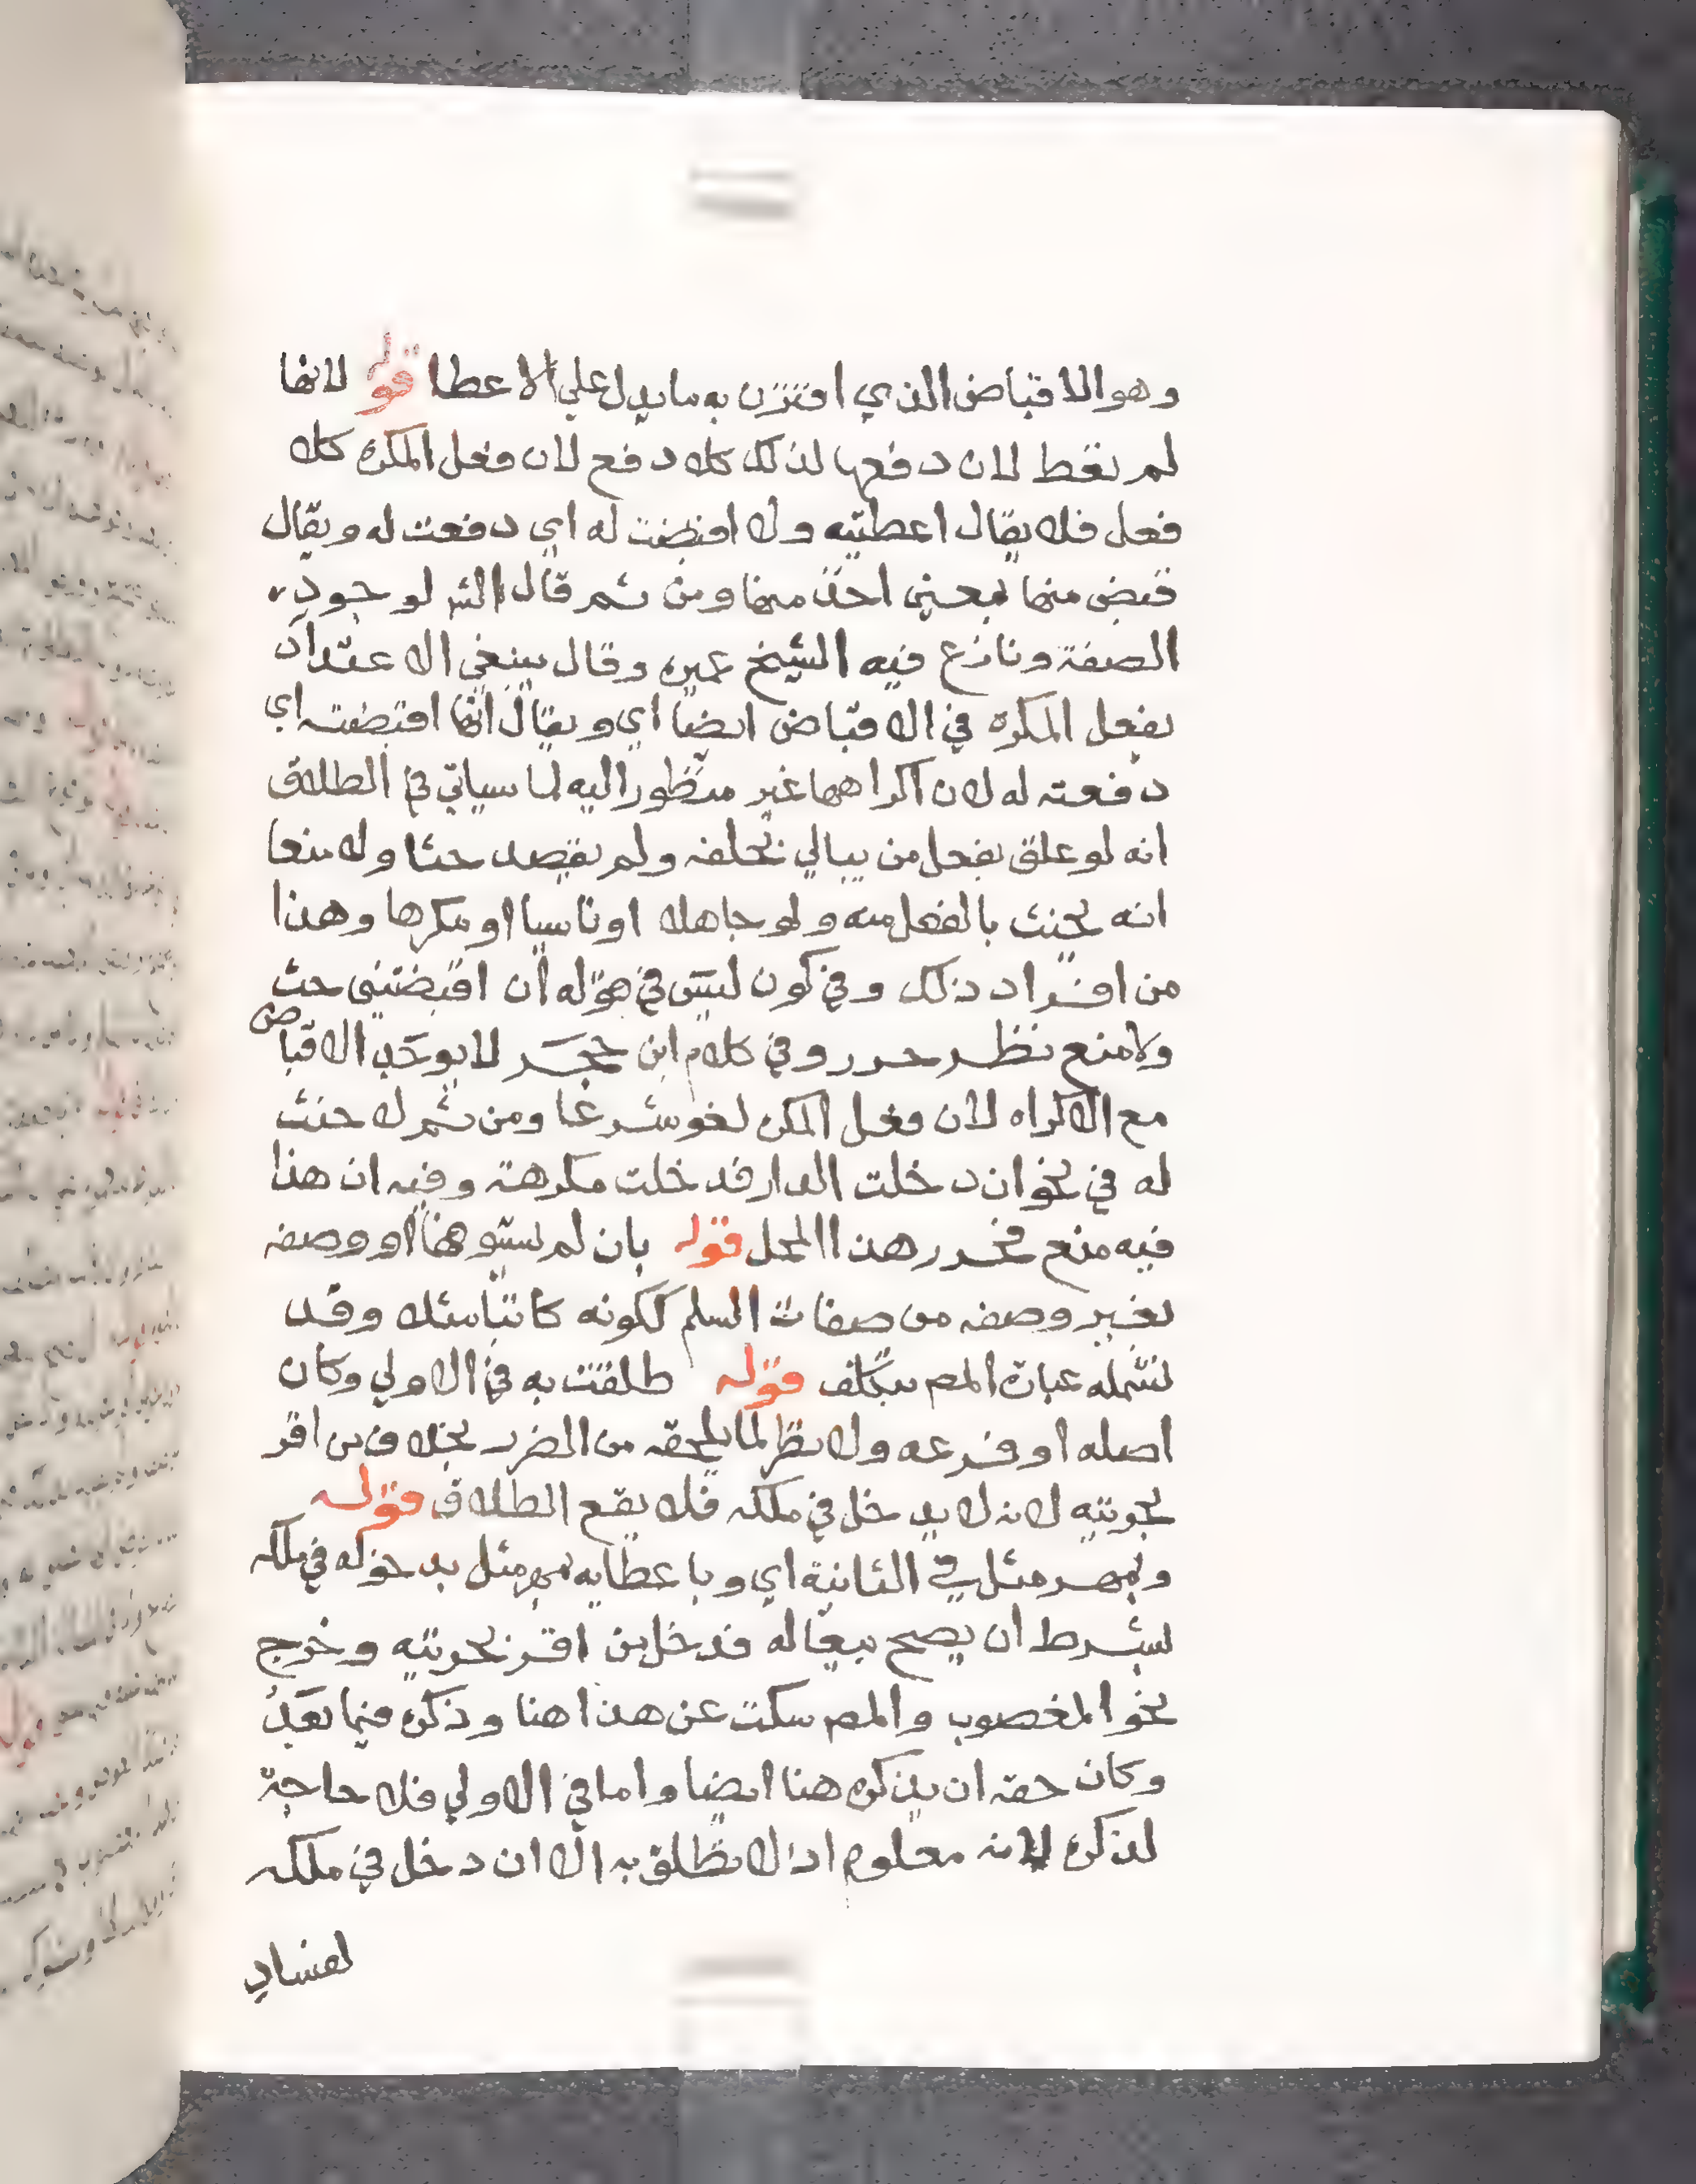 وهو الاقباض الذي اقترن به ما يدل علي الاعطا قوله لانها
لم تعط لان دفعها لذلك كلا دفع لان فعل المكره كلا
فعل فلا يقال اعطيته ولا اقبضت له اي دفعت له ويقال
قبض منها بمعني اخذ منها ومن ثم قال الش لوجود
الصفة ونازع فيه الشيخ عميره وقال ينبغي الاعتداد
بفعل المكره في الاقباض ايضا اي ويقال انها اقبضته اي
دفعته له لان اكراهها غير منظور اليه لما سياتي في الطلاق
انه لو علق بفعل من يبالي بحلفه ولم يقصد حثا ولا منعا
انه يحنث بالفعل منه ولو جاهلا او ناسيا او مكرها وهذا
من افراد ذلك وفي كون ليس في قوله ان اقبضتيني حث
ولا منع نظر حرر وفي كلام ابن حجر لا يوجد الاقباض
مع الاكراه لان فعل المكره لغو شرعا ومن ثم لا حنث
له في نحو ان دخلت الدار فدخلت مكرهة وفيه ان هذا
فيه منع فحرر هذا المحل قوله بان لم يستوهما او وصفه
بغير وصفه من صفات السلم ككونه كاتبا مثلا وقد
تشمله عبارة المص بتكلف قوله طلقت به في الاولي وكان
اصله او فرعه ولا نظر لما يلحقه من الضرر بخلاف من اقر
بحريته لانه لا يدخل في ملكه فلا يقع الطلاق قوله
وبمهر مثل في الثانية اي وباعطايه بمهر مثل يدخوله في ملكه
بشرط ان يصح بيعها له فدخل من اقر بحريته وخرج
نحو المغصوب والمص سكت عن هذا هنا وذكره فيما بعد
وكان حقه ان يذكره هنا ايضا واما في الاولي فلا حاجة
لذكره لانه معلوم اذ لا تطلق به الا ان دخل في ملكه
لفساد